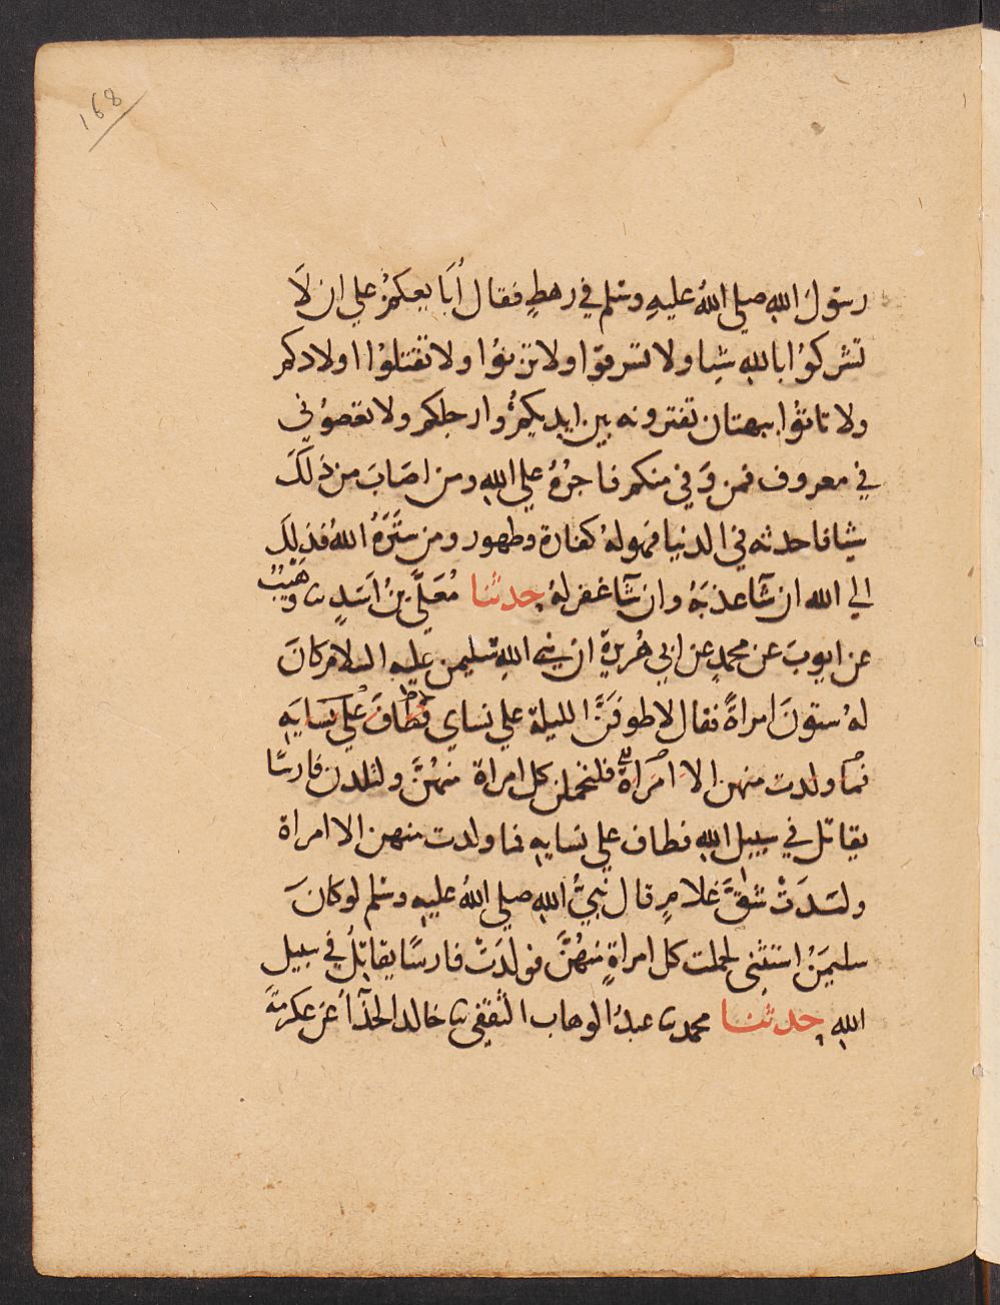 168
رسول الله صلي الله عليه وسلم في رهط فقال أبايعكم علي ان لا
تشركوا بالله شيا ولا تسرقوا ولا تزنوا ولا تقتلوا اولادكم
ولا تاتوا ببهتان تفترونه بين ايديكم وارجلكم ولا تعصوني
في معروف فمن وَفي منكم فاجره علي الله ومن اصاب من ذلك
شيا فاخذ به في الدنيا فهو له كفارة وطهور ومن سَتَرَهُ الله فذلك
الي الله ان شآ عذبه وان شآ غفر له حدثنا مُعَلَّي بنُ اَسَدٍ ثنا وهَيْبٌ
عن ايوب عن محمد عن ابي هُريرة ان نبي الله سليمن عليه السلام كان
له ستون امراةً فقال لاطوفَنَّ الليلة علي نساي فطاف علي نسايه
فما ولدت منهن الا امراة فلتحملن كل امراة منهُنَّ ولتلدن فارسًا
يقاتل في سبيل الله فطاف علي نسايه فما ولدت منهن الا امراة
ولَدَتْ شقَّ غلامٍ قال نبيُّ الله صلي الله عليه وسلم لو كان
سليمَنُ استثني لحملت كل امراةٍ منهُنَّ فولدَتْ فارسًا يقاتلُ في سبيل
الله حدثنا محمد ثنا عبدُ الوهاب الثقفي ثنا خالد الحذّآُ عن عكرمة